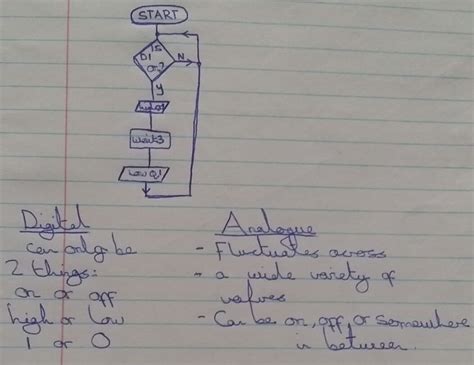 START
Is
D1
on?
N
Y
high Q1
wait 3
Low Q1
Digital
can only be
2 things:
on or off
high or low
1 or 0
Analogue
- Fluctuates across
- a wide variety of
values
- Can be on, off, or somewhere
in between.